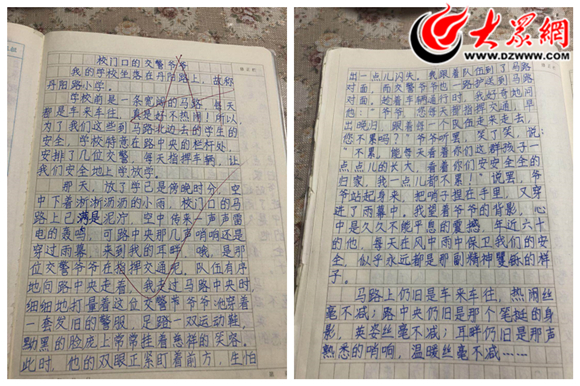 校门口的交警爷爷
我的学校坐落在丹阳路上,故称
丹阳路小学。
学校前是一条宽阔的马路,每天
都是车来车往,真是好不热闹!所以,
为了我们这些到马路北边去的学生的
安全,学校特意在路中央的栏杆处,
安排了几位交警,每天指挥车辆,让
我们安全地上学放学。
那天,放了学已是傍晚时分,空
中下着淅淅沥沥的小雨,校门口的马
路上已满是泥泞,空中传来一声声雷
电的轰鸣,可路中央那几声哨响还是
穿过雨幕,来到我的耳畔,哦,是那
位交警爷爷在指挥交通呢。队伍有序
地向路中央走着,我走过马路中央时,
细细地打量着这位交警爷爷,他穿着
一套发旧的警服,足踏一双运动鞋,
黝黑的脸庞上常常挂着慈祥的笑容。
此时,他的双眼正紧盯着前方,生怕
大众網
www.dzwww.com
出一点儿闪失。我跟着队伍到了马路
对面,而交警爷爷也一路护送到马路
对面。趁着车辆通行时,我好奇地问
他:"爷爷,您每天指挥交通,早
出晚归,跟着一个队伍走来走去,
您不累吗?"爷爷听罢,笑了笑,说:
"不累,能每天看着你们这群孩子一
点点儿的长大,看着你们安安全全的
归家,我一点儿都不累!"说罢,爷
爷站起身来,把哨子捏在手里,又穿
进了雨幕中。我望着爷爷的背影,心
中是久久不能平息的震撼,年近六十
的他,每天在风中雨中保卫我们的安
全,似乎永远都是那副精神矍铄的样
子。
马路上仍旧是车来车往,热闹丝
毫不减;路中央仍旧是那个笔挺的身
影,英姿丝毫不减;耳畔仍旧是那声
熟悉的哨响,温暖丝毫不减……